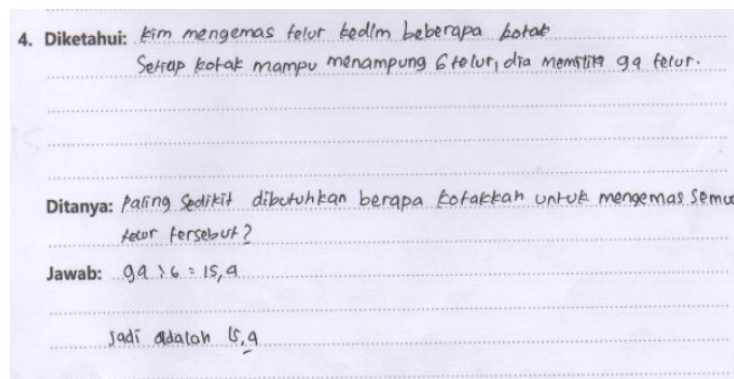 4. Diketahui: kim mengemas telur kedlm beberapa kotak
Setiap kotak mampu menampung 6 telur, dia memiliki 94 telur.
Ditanya: paling sedikit dibutuhkan berapa kotakkah untuk mengemas semua
telur tersebut?
Jawab: 94 : 6 = 15,4
Jadi adalah 15,4